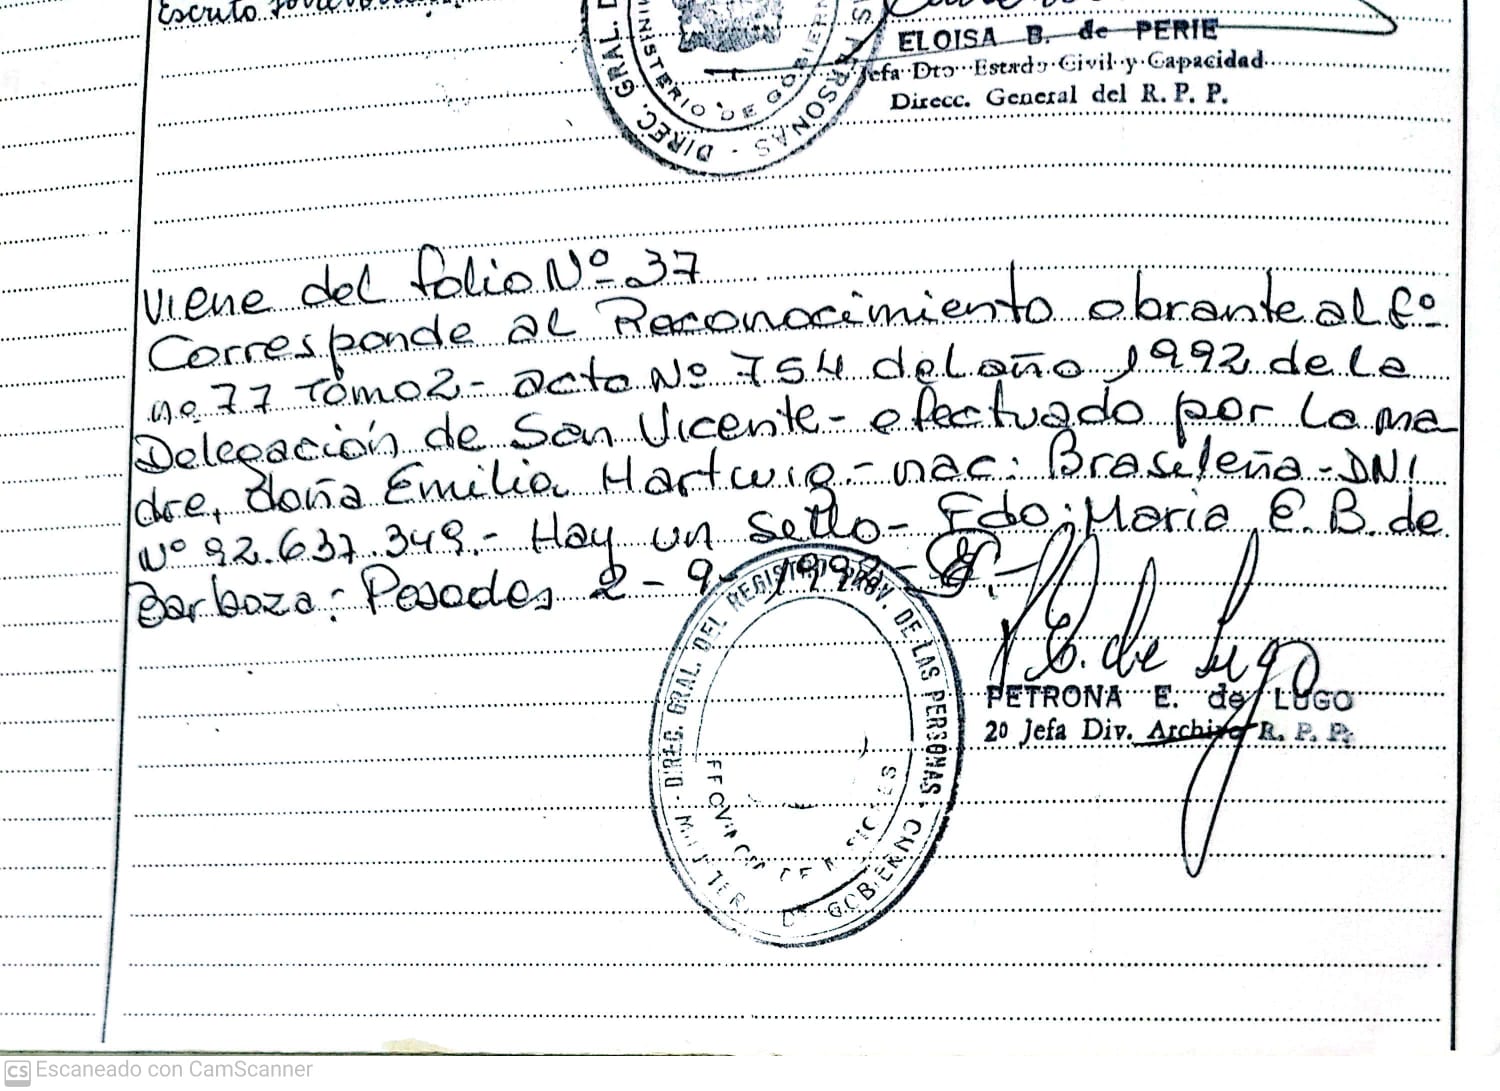 Escrito
DIREC. GRAL. D
MINISTERIO DE GOBIERN
PERSONAS
ELOISA B. de PERIE
Jefa Dto Estado Civil y Capacidad
Direcc. General del R. P. P.
Viene del folio Nº 37
Corresponde al Reconocimiento obrante al fº
nº 77 Tomo 2 - acta Nº 754 del año 1992 de la
Delegación de San Vicente - efectuado por la ma
dre, doña Emilia Hartwig - nac: Brasileña - DNI
Nº 92.637.349.- Hay un sello - Fdo: Maria E. B. de
Barboza: Posadas 2 - 9 - 1992 -
DIREC. GRAL. DEL REGISTRO PROV. DE LAS PERSONAS
PROVINCIA DE MISIONES
GOBIERNO
E. de Lugo
PETRONA E. de LUGO
2º Jefa Div. Archivo R. P. P.
CS Escaneado con CamScanner